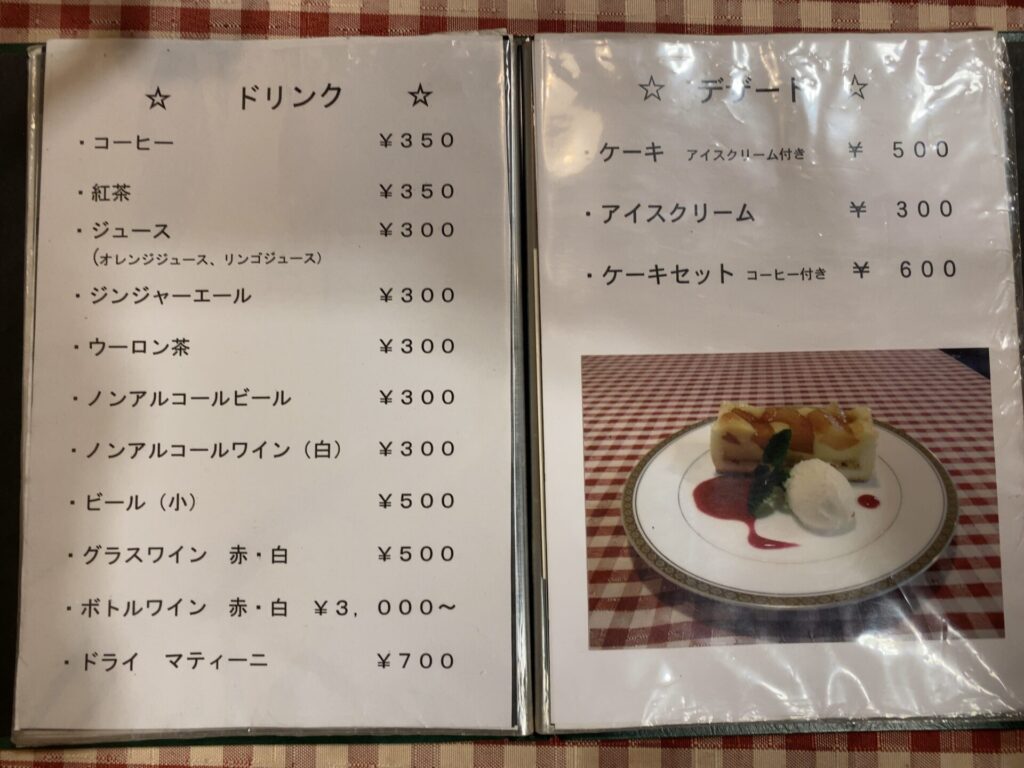 ☆ ドリンク ☆
・コーヒー ￥３５０
・紅茶 ￥３５０
・ジュース ￥３００
（オレンジジュース、リンゴジュース）
・ジンジャーエール ￥３００
・ウーロン茶 ￥３００
・ノンアルコールビール ￥３００
・ノンアルコールワイン（白） ￥３００
・ビール（小） ￥５００
・グラスワイン　赤・白 ￥５００
・ボトルワイン　赤・白 ￥３，０００～
・ドライ　マティーニ ￥７００
☆ デザート ☆
・ケーキ アイスクリーム付き ￥ ５００
・アイスクリーム ￥ ３００
・ケーキセット コーヒー付き ￥ ６００